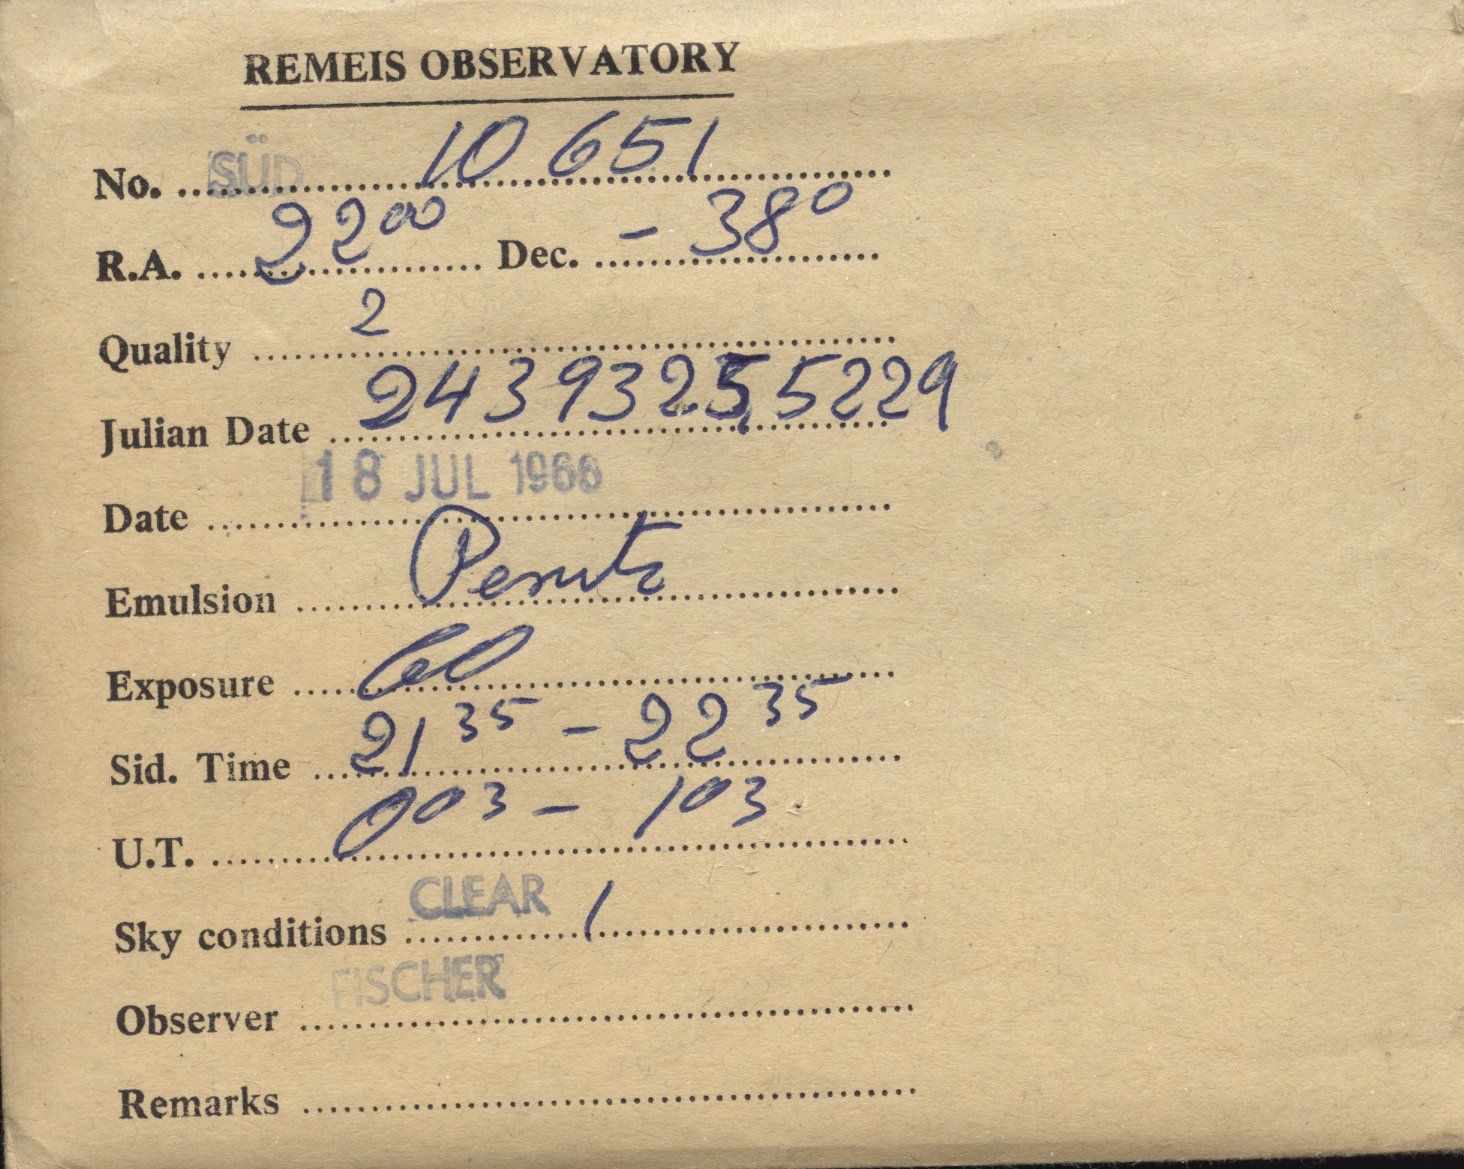 REMEIS OBSERVATORY
No. SÜD 10 651
R.A. 22⁰⁰ Dec. - 38⁰
Quality 2
Julian Date 2439325,5229
Date 18 JUL 1966
Emulsion Perutz
Exposure 60
Sid. Time 21³⁵ - 22³⁵
U.T. 0⁰³ - 1⁰³
Sky conditions CLEAR 1
Observer FISCHER
Remarks